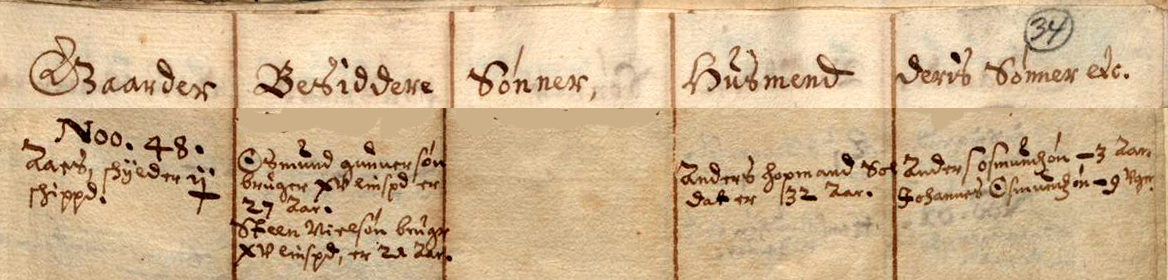 34
Gaarder Besiddere Sønner, Husmend deris Sønner etc.
Noo. 48.
Aars, skylder ij
skippd.
Osmund gundersøn
bruger XV linspd er
27 Aar.
Steen Nielsøn bruger
XV linspd, er 21 Aar.
Anders hopmand Sol
dat er 32 Aar.
Anders Osmundsøn - 3 Aar
Johannes Osmundsøn - 9 Uger